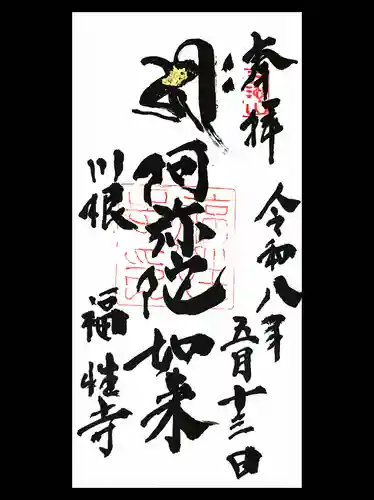 清拝
令和八年
五月十三日
阿弥陀如来
川根
福性寺